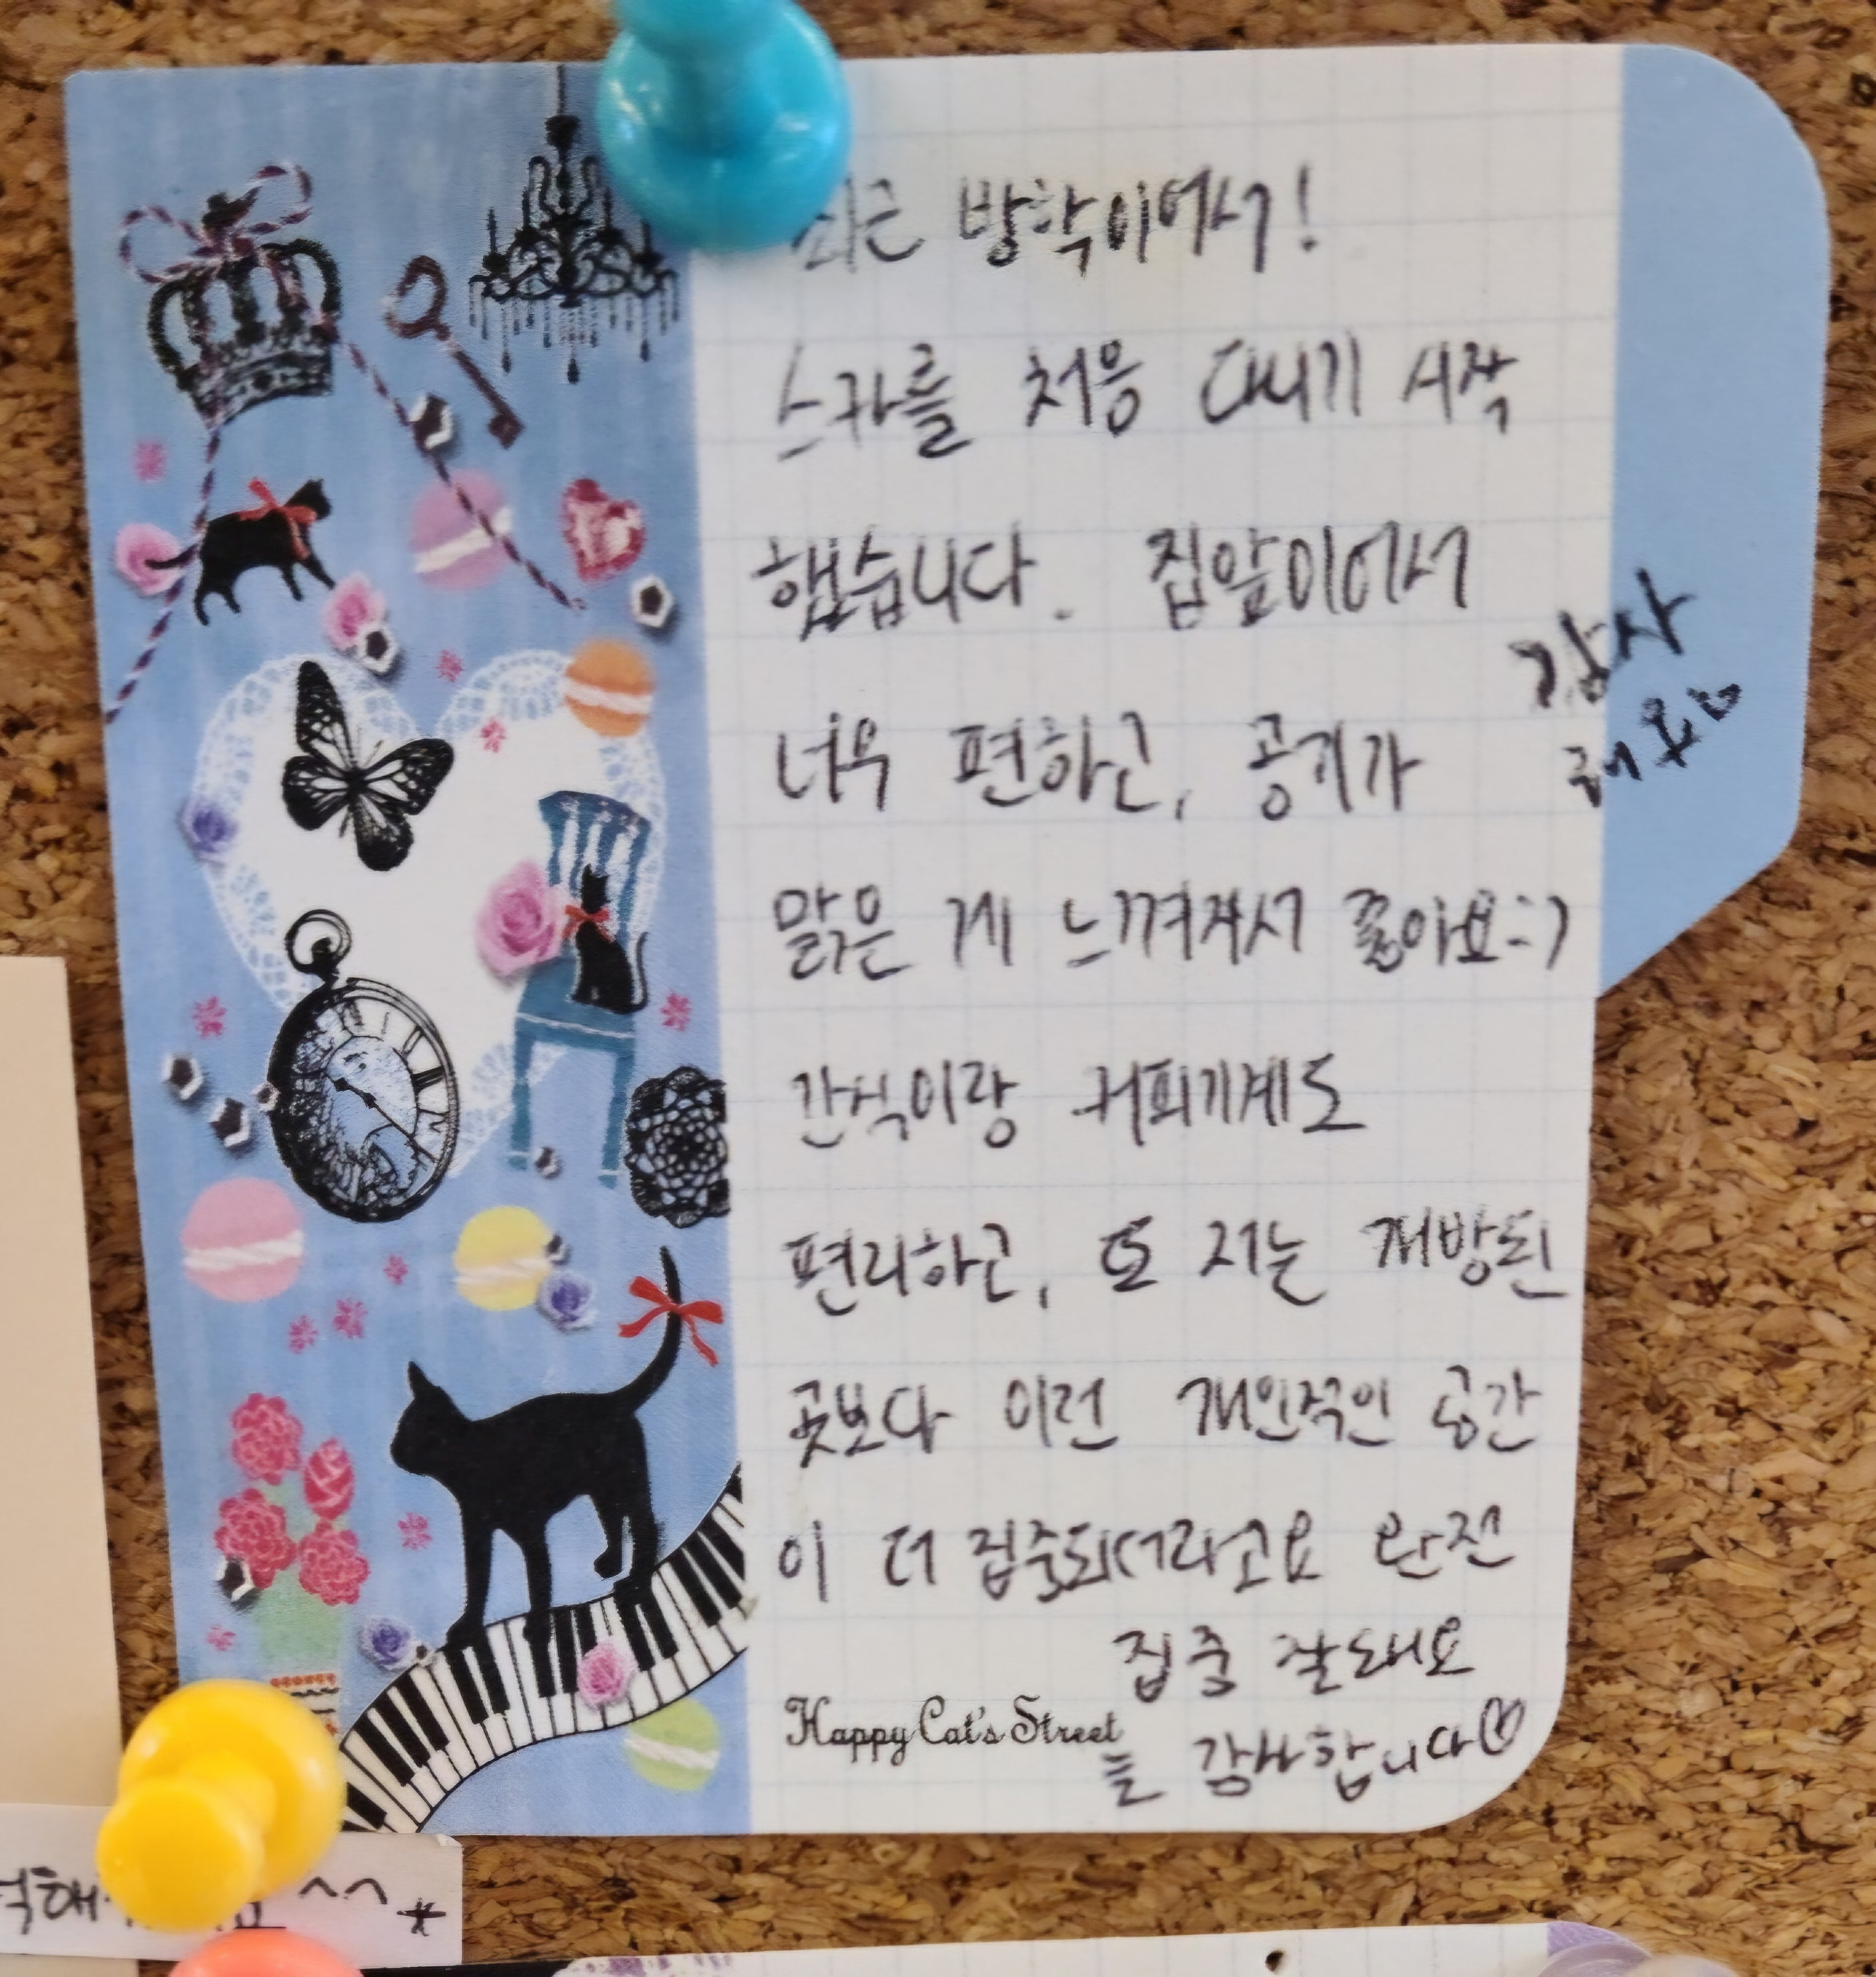 최근 방학이어서!
스카를 처음 다니기 시작
했습니다. 집앞이어서
너무 편하고, 공기가
맑은 게 느껴져서 좋아요:)
간식이랑 커피기계도
편리하고, 또 저는 개방된
곳보다 이런 개인적인 공간
이 더 집중되더라고요 완전
집중 잘돼요
늘 감사합니다♡
감사
해요♡
Happy Cat's Street
^^*